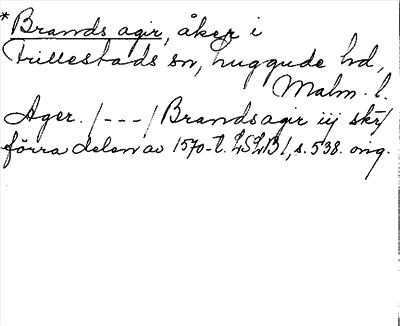 * Brands agir, åker i
Frillestads sn, Luggude hd,
Malm. l.
Ager. /---/ Brandsagir iij skr/
förra delen av 1570-t. LSLB 1, s. 538. orig.